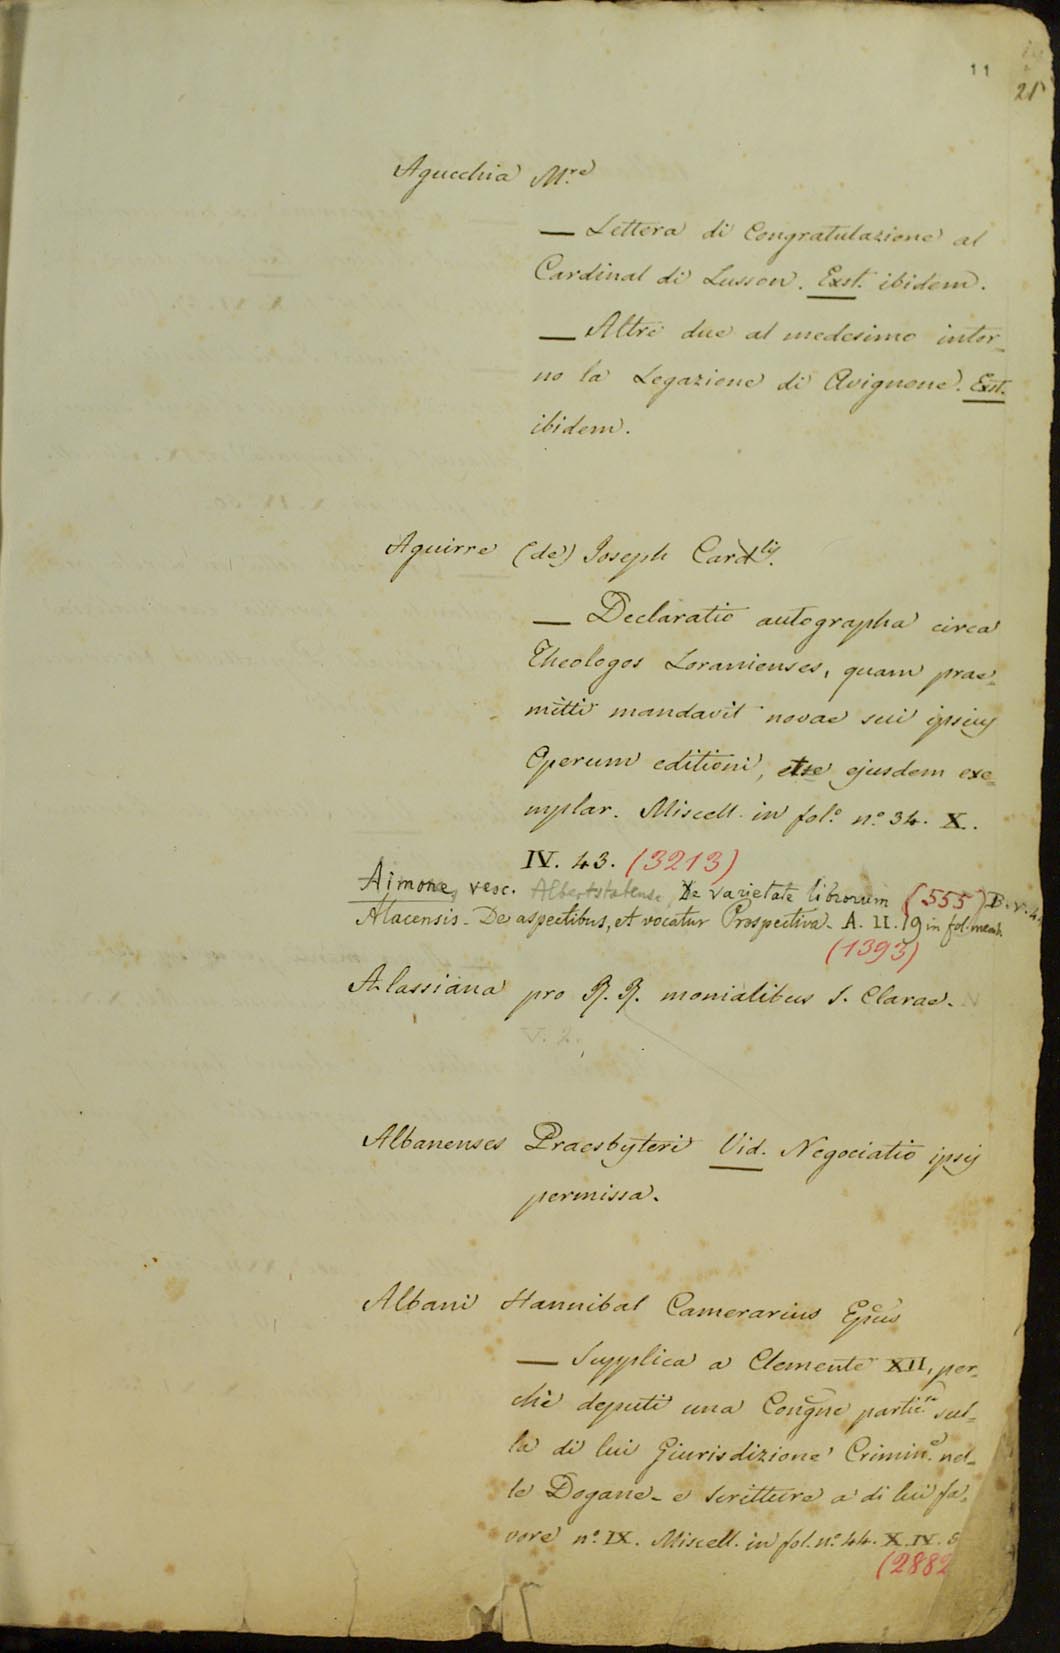 11
21
Agucchia M.re
— Lettera di Congratulazione al
Cardinal di Lusson. Exst. ibidem.
— Altre due al medesimo intor-
no la Legazione di Avignone. Exst.
ibidem.
Aguirre (de) Joseph Card.lis
— Declaratio autographa circa
Theologos Lovanienses, quam prae-
mitti mandavit novae sui ipsius
Operum editioni, ejusdem exe-
mplar. Miscell. in fol.o n.o 34. X.
IV. 43. (3213)
Aimone, vesc. Alberstatense, De varietate librorum (555) B. V. 4
Alacensis - De aspectibus, et vocatur Prospectiva - A. II. 19 in fol. memb.
(1393)
Alassiana pro R. R. monialibus S. Clarae.
V. 2.
Albanenses Praesbyteri Vid. Negociatio ipsis
permissa.
Albani Hannibal Camerarius Epcus
— Supplica a Clemente XII, per-
chè deputi una Congne partic.re sul-
la di lui Giurisdizione Crimin.e nel-
le Dogane - e scritture a di lui fa-
vore n.o IX. Miscell. in fol. n.o 44. X. IV.
(2882